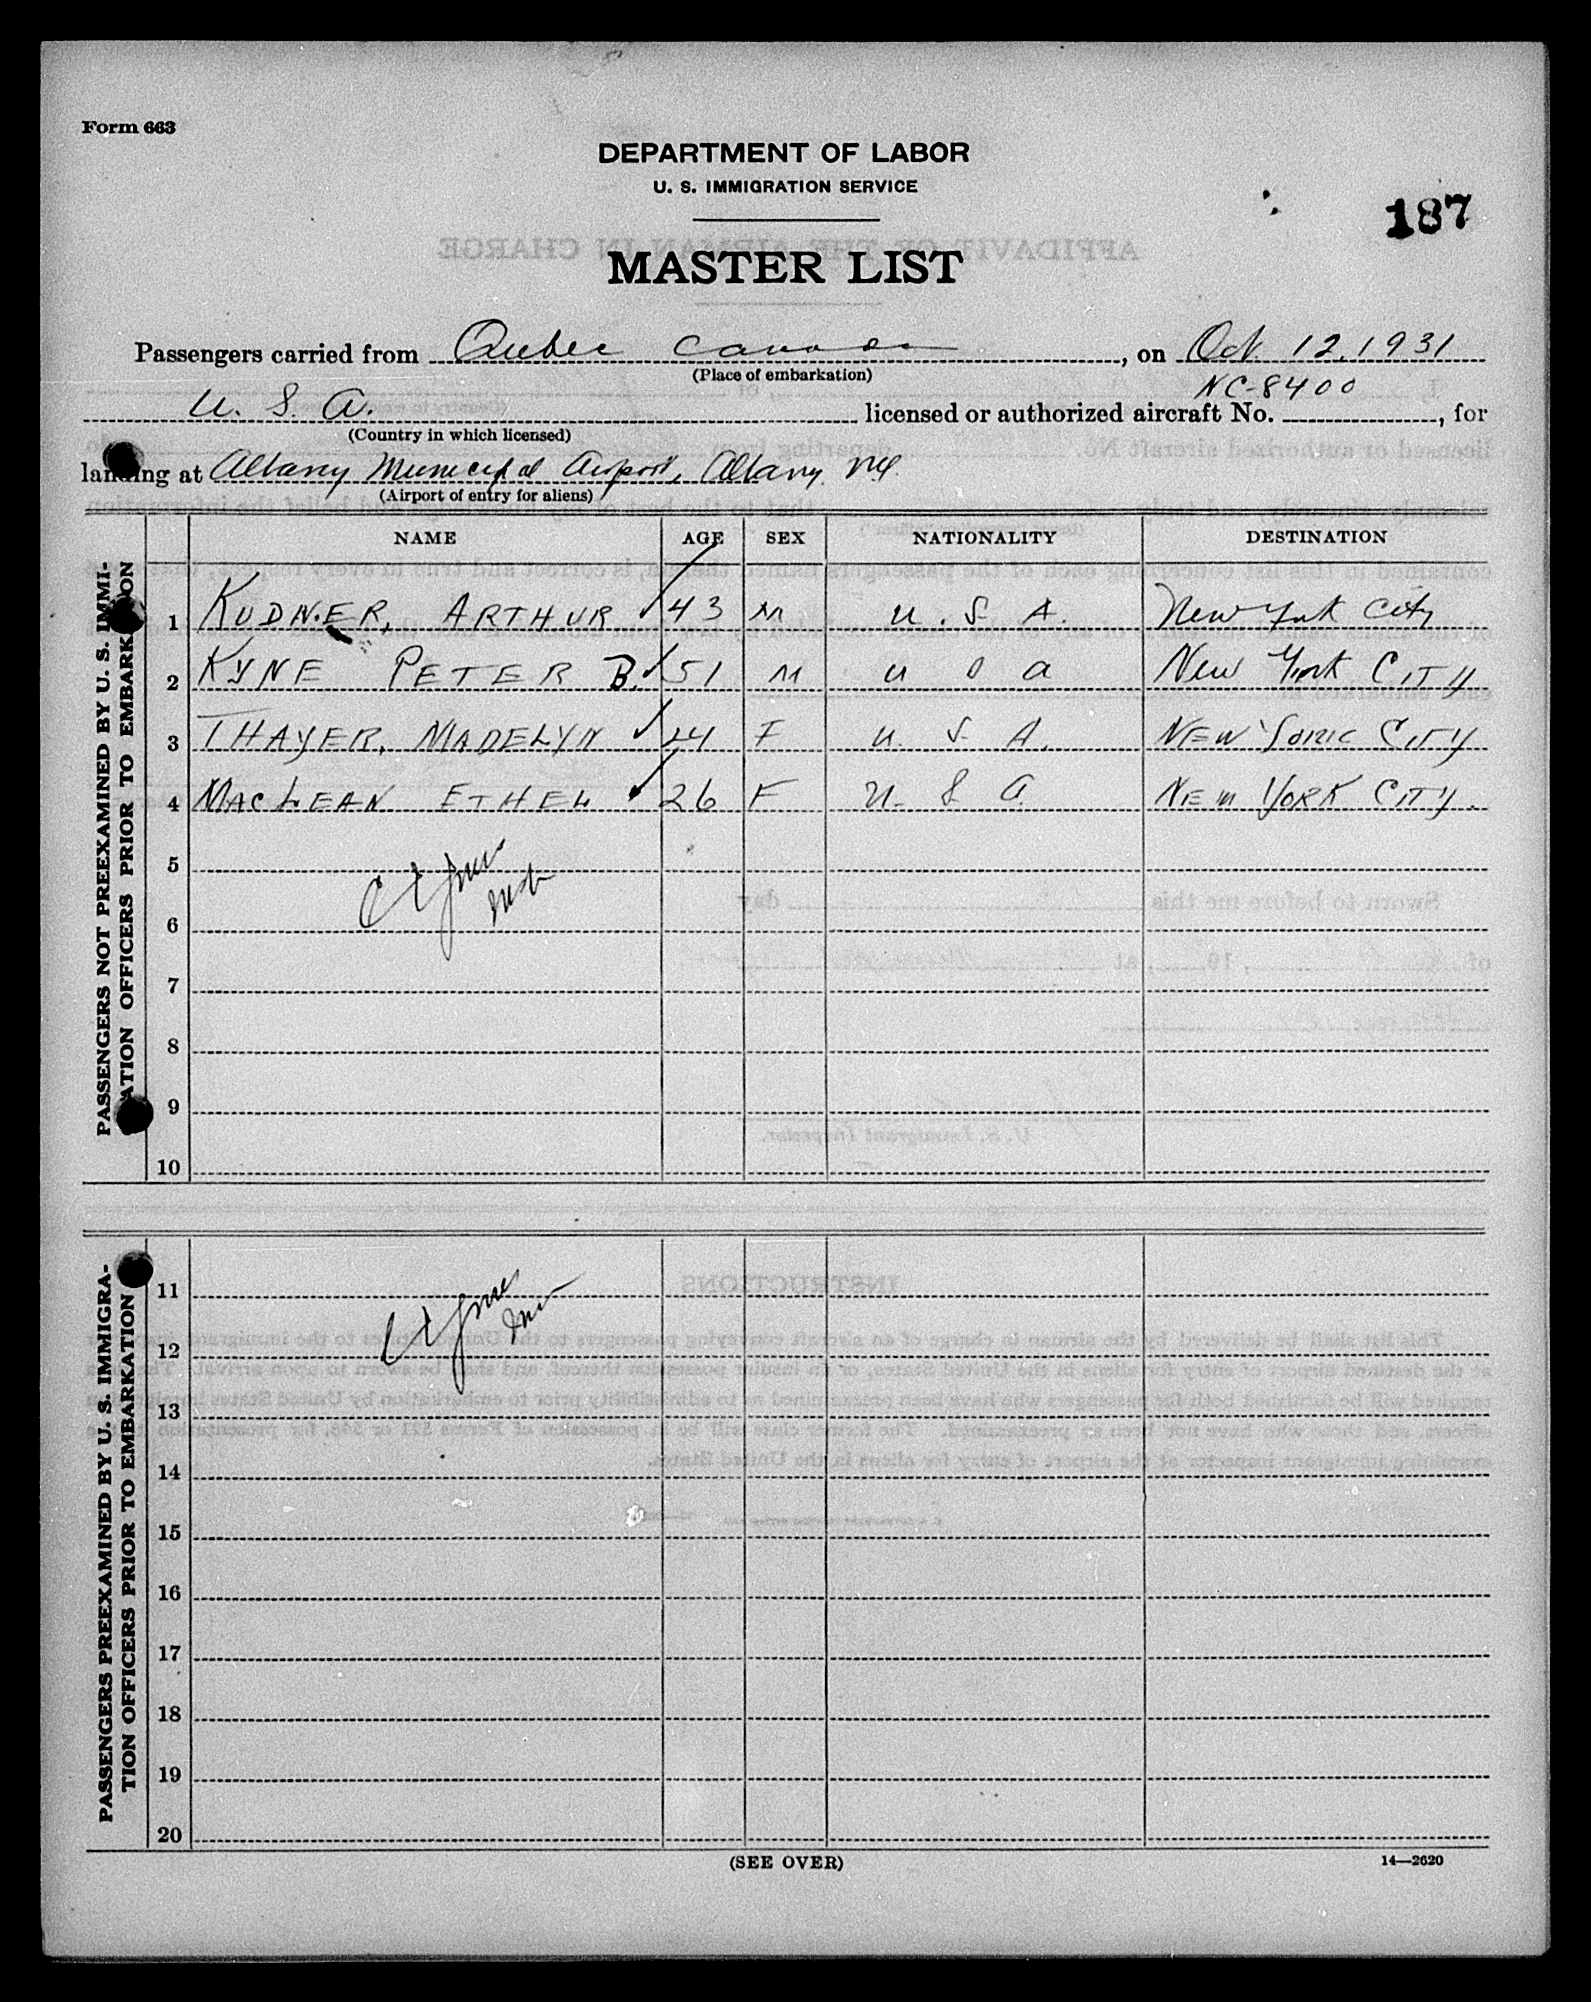 Form 663
DEPARTMENT OF LABOR
U. S. IMMIGRATION SERVICE
187
MASTER LIST
Passengers carried from Quebec Canada, on Oct. 12, 1931
(Place of embarkation)
NC-8400
U. S. A. licensed or authorized aircraft No. , for
(Country in which licensed)
landing at Albany Municipal Airport, Albany NY
(Airport of entry for aliens)
NAME AGE SEX NATIONALITY DESTINATION
PASSENGERS NOT PREEXAMINED BY U. S. IMMI-
GRATION OFFICERS PRIOR TO EMBARKATION
1 KUDNER, ARTHUR ✓ 43 M U. S. A. New York City
2 KYNE PETER B. ✓ 51 M U S A New York CITY
3 THAYER, MADELYN ✓ 24 F U. S. A. NEW YORK CITY
4 MACLEAN ETHEL ✓ 26 F U. S. A. NEW YORK CITY.
5
6
7
8
9
10
PASSENGERS PREEXAMINED BY U. S. IMMIGRA-
TION OFFICERS PRIOR TO EMBARKATION
11
12
13
14
15
16
17
18
19
20
(SEE OVER)
14—2620